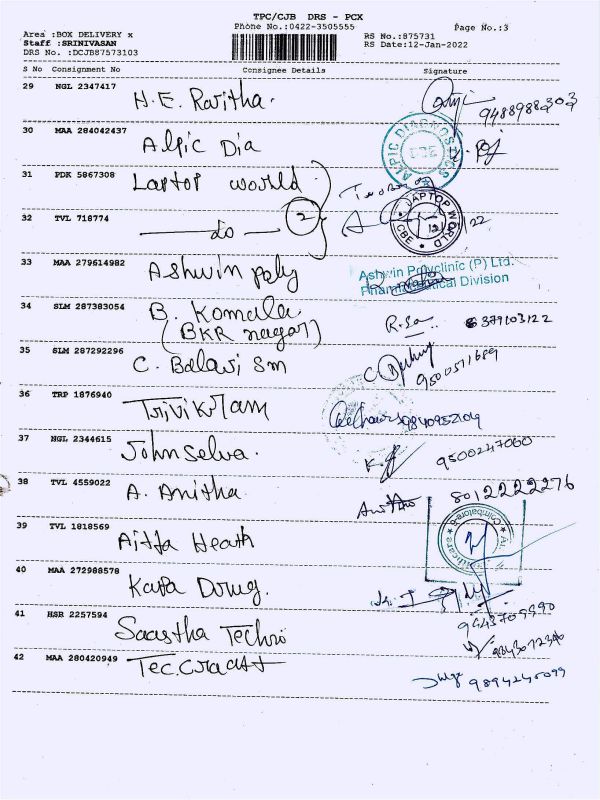 TPC/CJB DRS - PCX
Phone No.:0422-3505555
Page No.:3
Area :BOX DELIVERY x
Staff :SRINIVASAN
DRS No. :DCJB87573103
RS No.:875731
RS Date:12-Jan-2022
S No Consignment No Consignee Details Signature
29 NGL 2347417 H.E. Ravitha. 9488988303
30 MAA 284042437 Alpic Dia
ALPIC DIAGNOSTICS
31 PDK 5867308 Laptop world
32 TVL 718774 do 2
LAPTOP WORLD CBE
33 MAA 279614982 Ashwin poly
Ashwin Polyclinic (P) Ltd.
Pharmaceutical Division
34 SLM 287383054 B. Komala
(BKR nagar)
R.Sa 6379103122
35 SLM 287292296 C. Balaji Sm 9500511689
36 TRP 1876940 Trivikram 9840952104
37 NGL 2344615 John selva. 9500247060
38 TVL 4559022 A. Anitha 8012222276
39 TVL 1818569 Heath
Coimbatore
40 MAA 272988578 Kapa Drug.
9443709990
41 HSR 2257594 Saastha Techno
42 MAA 280420949 9894240099